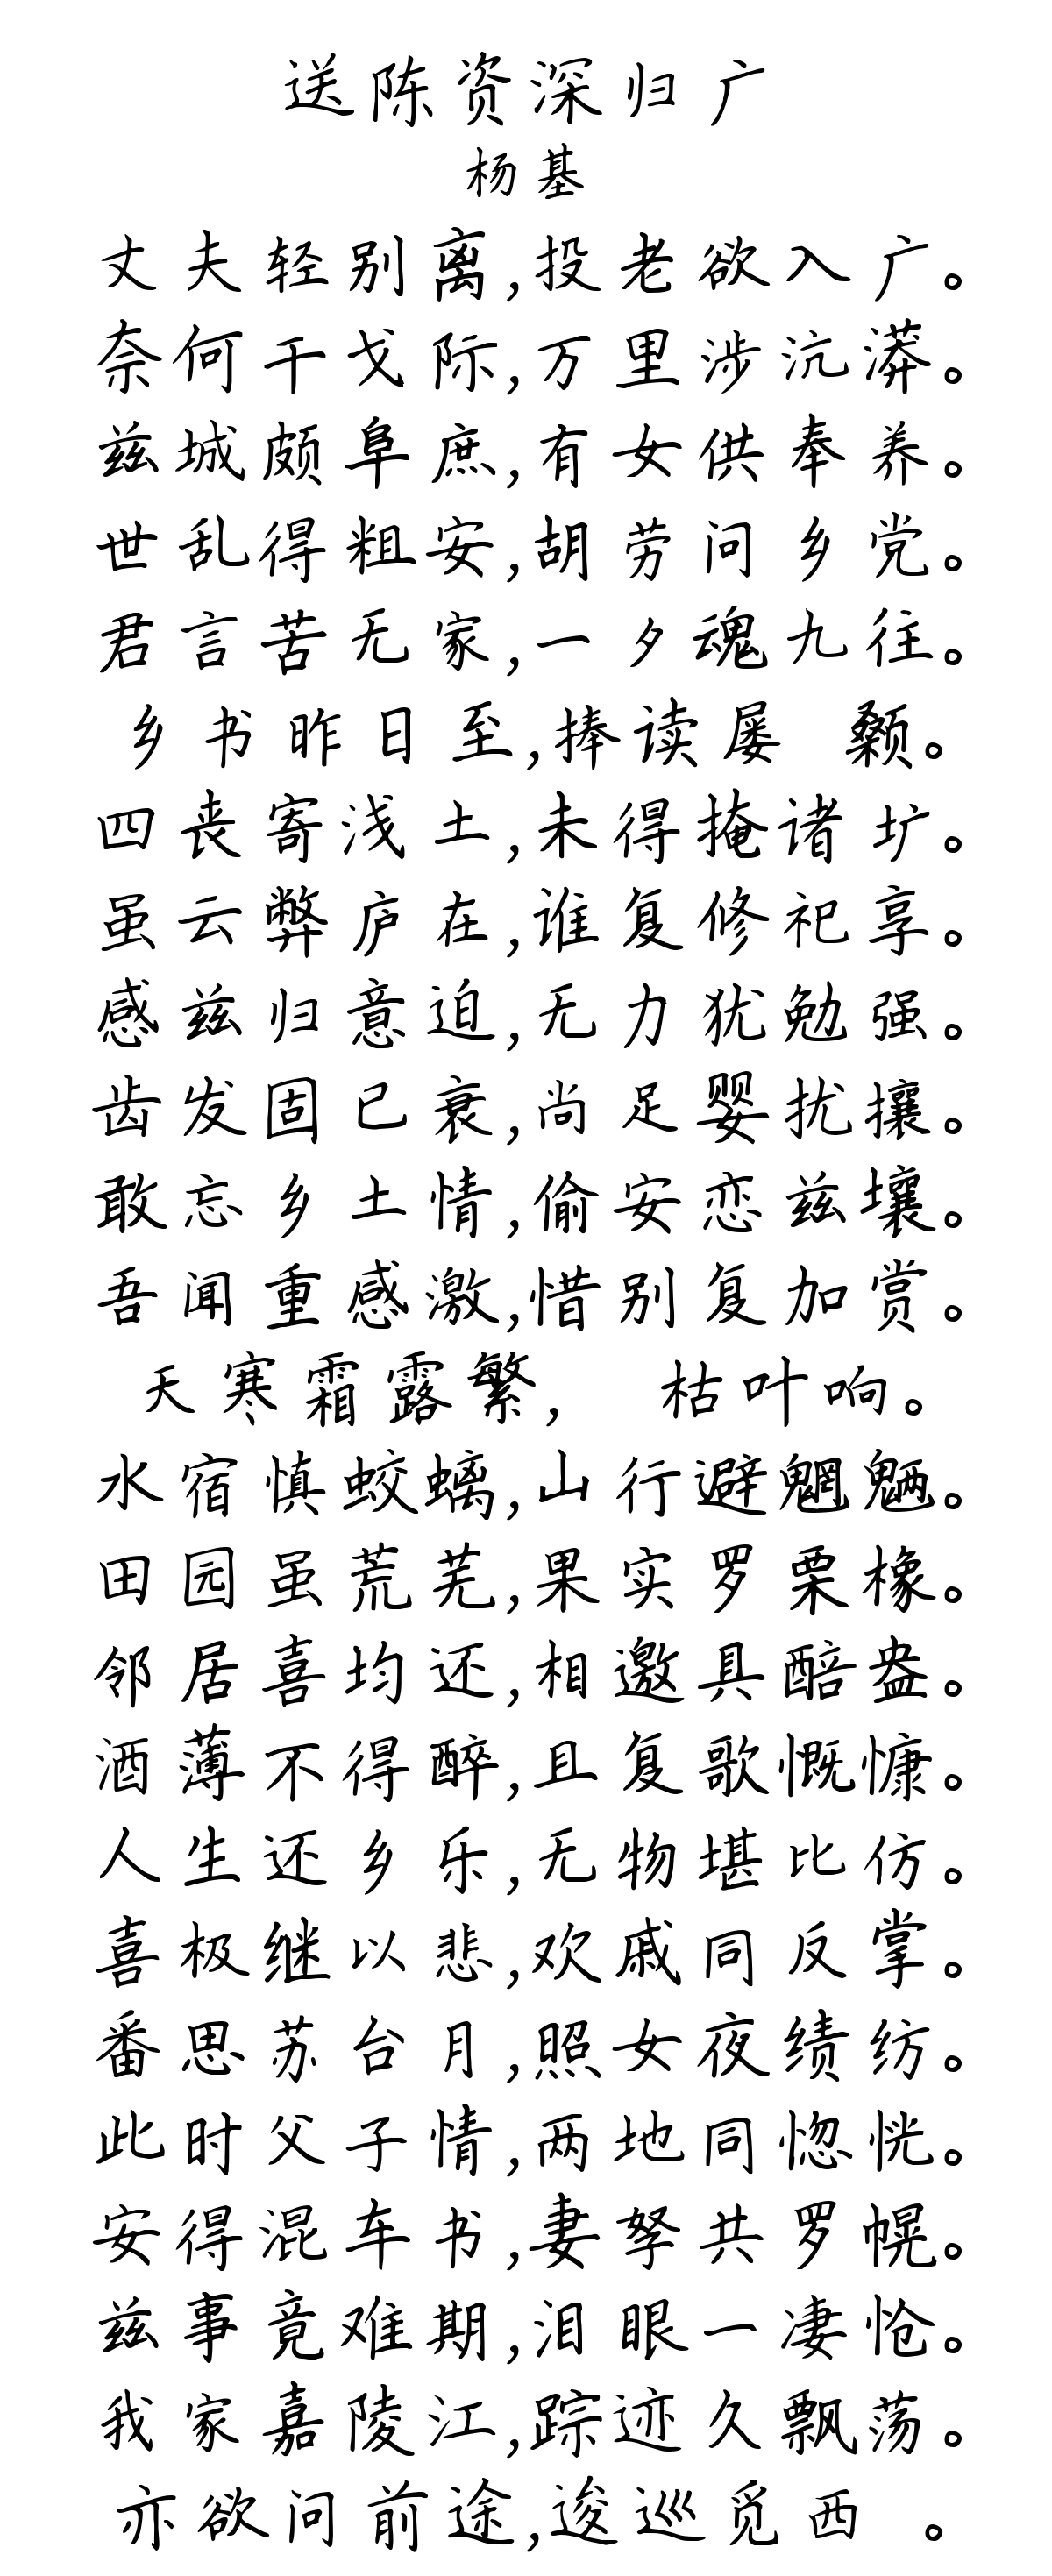 送陈资深归广
杨基
丈夫轻别离,投老欲入广。
奈何干戈际,万里涉沆漭。
兹城颇阜庶,有女供奉养。
世乱得粗安,胡劳问乡党。
君言苦无家,一夕魂九往。
乡书昨日至,捧读屡 颡。
四丧寄浅土,未得掩诸圹。
虽云弊庐在,谁复修祀享。
感兹归意迫,无力犹勉强。
齿发固已衰,尚足婴扰攘。
敢忘乡土情,偷安恋兹壤。
吾闻重感激,惜别复加赏。
天寒霜露繁, 枯叶响。
水宿慎蛟螭,山行避魍魉。
田园虽荒芜,果实罗栗橡。
邻居喜均还,相邀具醅盎。
酒薄不得醉,且复歌慨慷。
人生还乡乐,无物堪比仿。
喜极继以悲,欢戚同反掌。
番思苏台月,照女夜绩纺。
此时父子情,两地同惚恍。
安得混车书,妻孥共罗幌。
兹事竟难期,泪眼一凄怆。
我家嘉陵江,踪迹久飘荡。
亦欲问前途,逡巡觅西 。